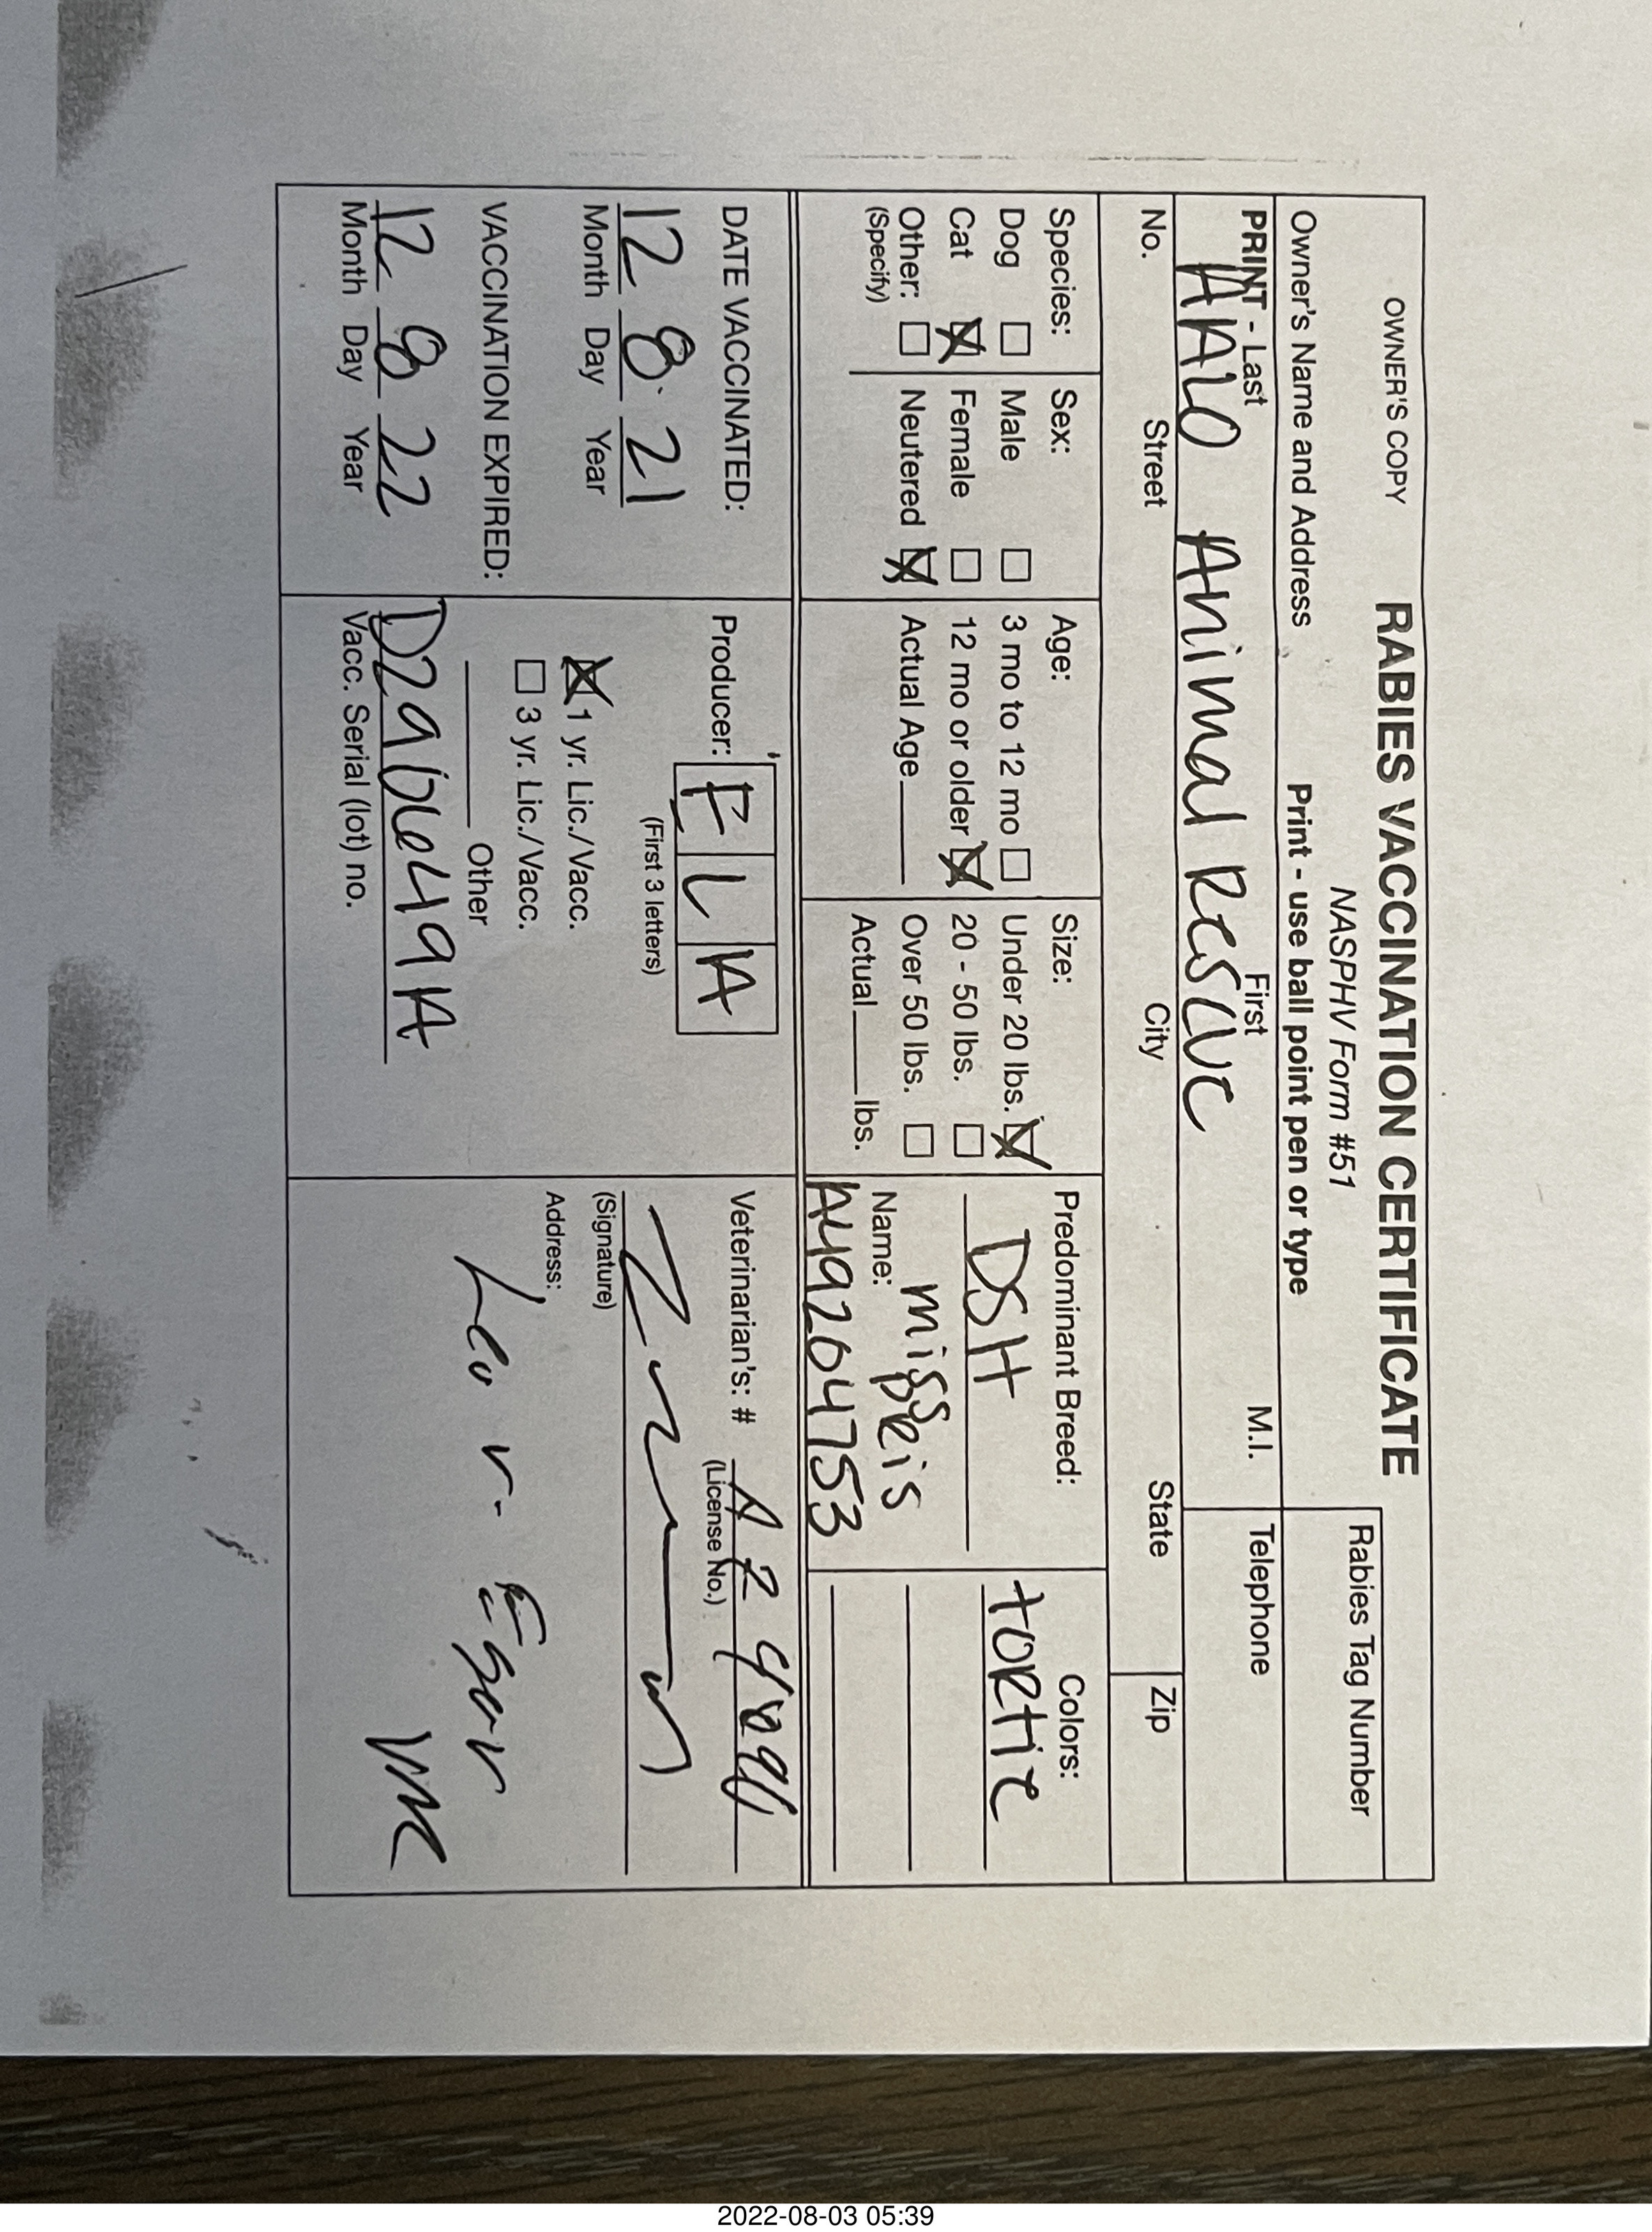 OWNER'S COPY
RABIES VACCINATION CERTIFICATE
NASPHV Form #51
Rabies Tag Number
Owner's Name and Address
Print - use ball point pen or type
PRINT - Last First M.I. Telephone
HALO Animal Rescue
No. Street City State Zip
Species:
Dog
Cat
Other:
(Specify)
Sex:
Male
Female
Neutered
Age:
3 mo to 12 mo
12 mo or older
Actual Age
Size:
Under 20 lbs.
20 - 50 lbs.
Over 50 lbs.
Actual lbs.
Predominant Breed:
DSH
Name:
A49204753
Colors:
tortie
DATE VACCINATED:
12 8 21
Month Day Year
VACCINATION EXPIRED:
12 8 22
Month Day Year
Producer: E L A
(First 3 letters)
1 yr. Lic./Vacc.
3 yr. Lic./Vacc.
Other
Vacc. Serial (lot) no.
Veterinarian's: #
(License No.)
(Signature)
Address:
2022-08-03 05:39